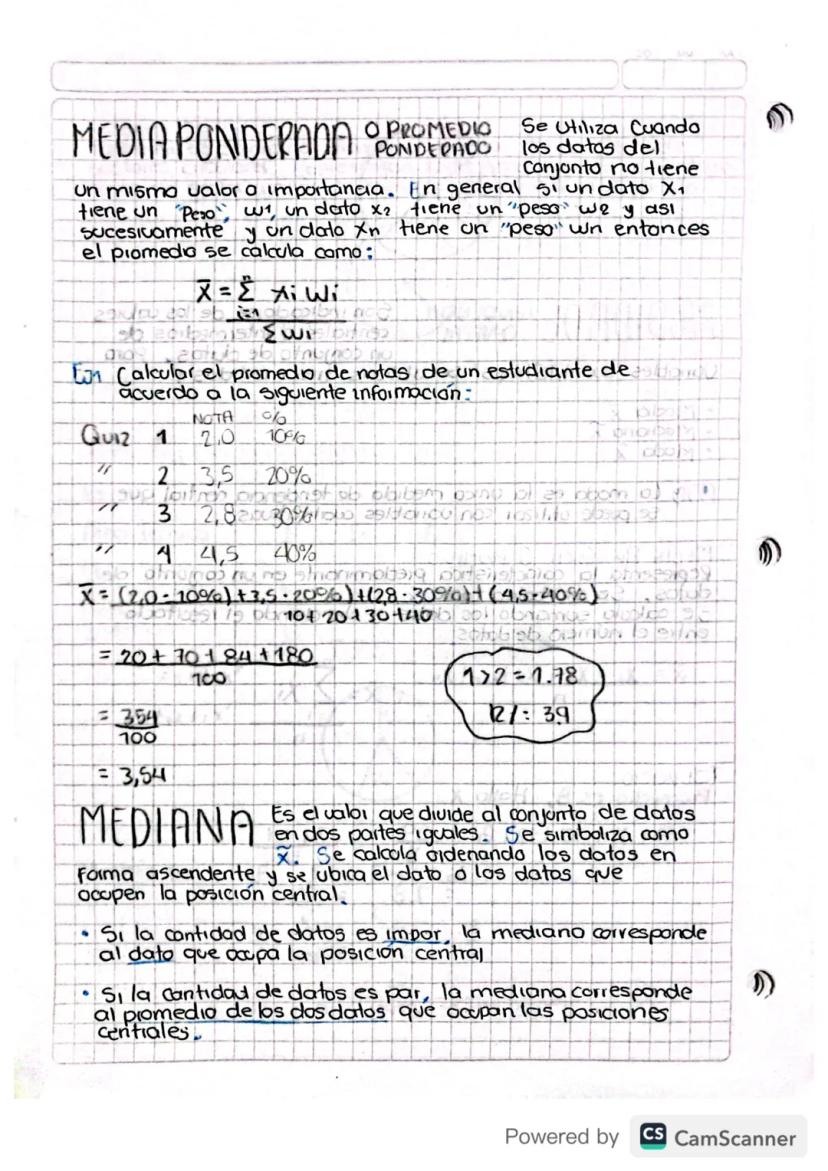 MEDIA PONDERADA O PROMEDIO PONDERADO Se utiliza cuando
los datos del
conjonto no tiene
un mismo valor o importancia. En general si un dato X₁
tiene un "Peso", w1, un dato x₂ tiene un "peso" w2 y asi
sucesivamente y un dato Xn tiene un "peso" wn entonces
el promedio se calcula como:
X̄ = Σ xi wi
n
i=1
Σ wi
Ej1 Calcular el promedio de notas de un estudiante de
acuerdo a la siguiente información:
NOTA %
Quiz 1 2,0 10%
" 2 3,5 20%
" 3 2,8 30%
" 4 4,5 40%
X̄ = (2,0 · 10%) + 3,5 · 20%) + (2,8 · 30%) + (4,5 · 40%)
10 + 20 + 30 + 40
= 20 + 70 + 84 + 180
100
= 354
100
= 3,54
1>2 = 1.78
R/: 39
MEDIANA Es el valor que divide al conjunto de datos
en dos partes iguales. Se simboliza como
x̃. Se calcola ordenando los datos en
forma ascendente y se ubica el dato o los datos que
ocupen la posición central.
• Si la cantidad de datos es impar, la mediana corresponde
al dato que ocupa la posición central
• Si la cantidad de datos es par, la mediana corresponde
al promedio de los dos datos que ocupan las posiciones
centrales.
Powered by CS CamScanner